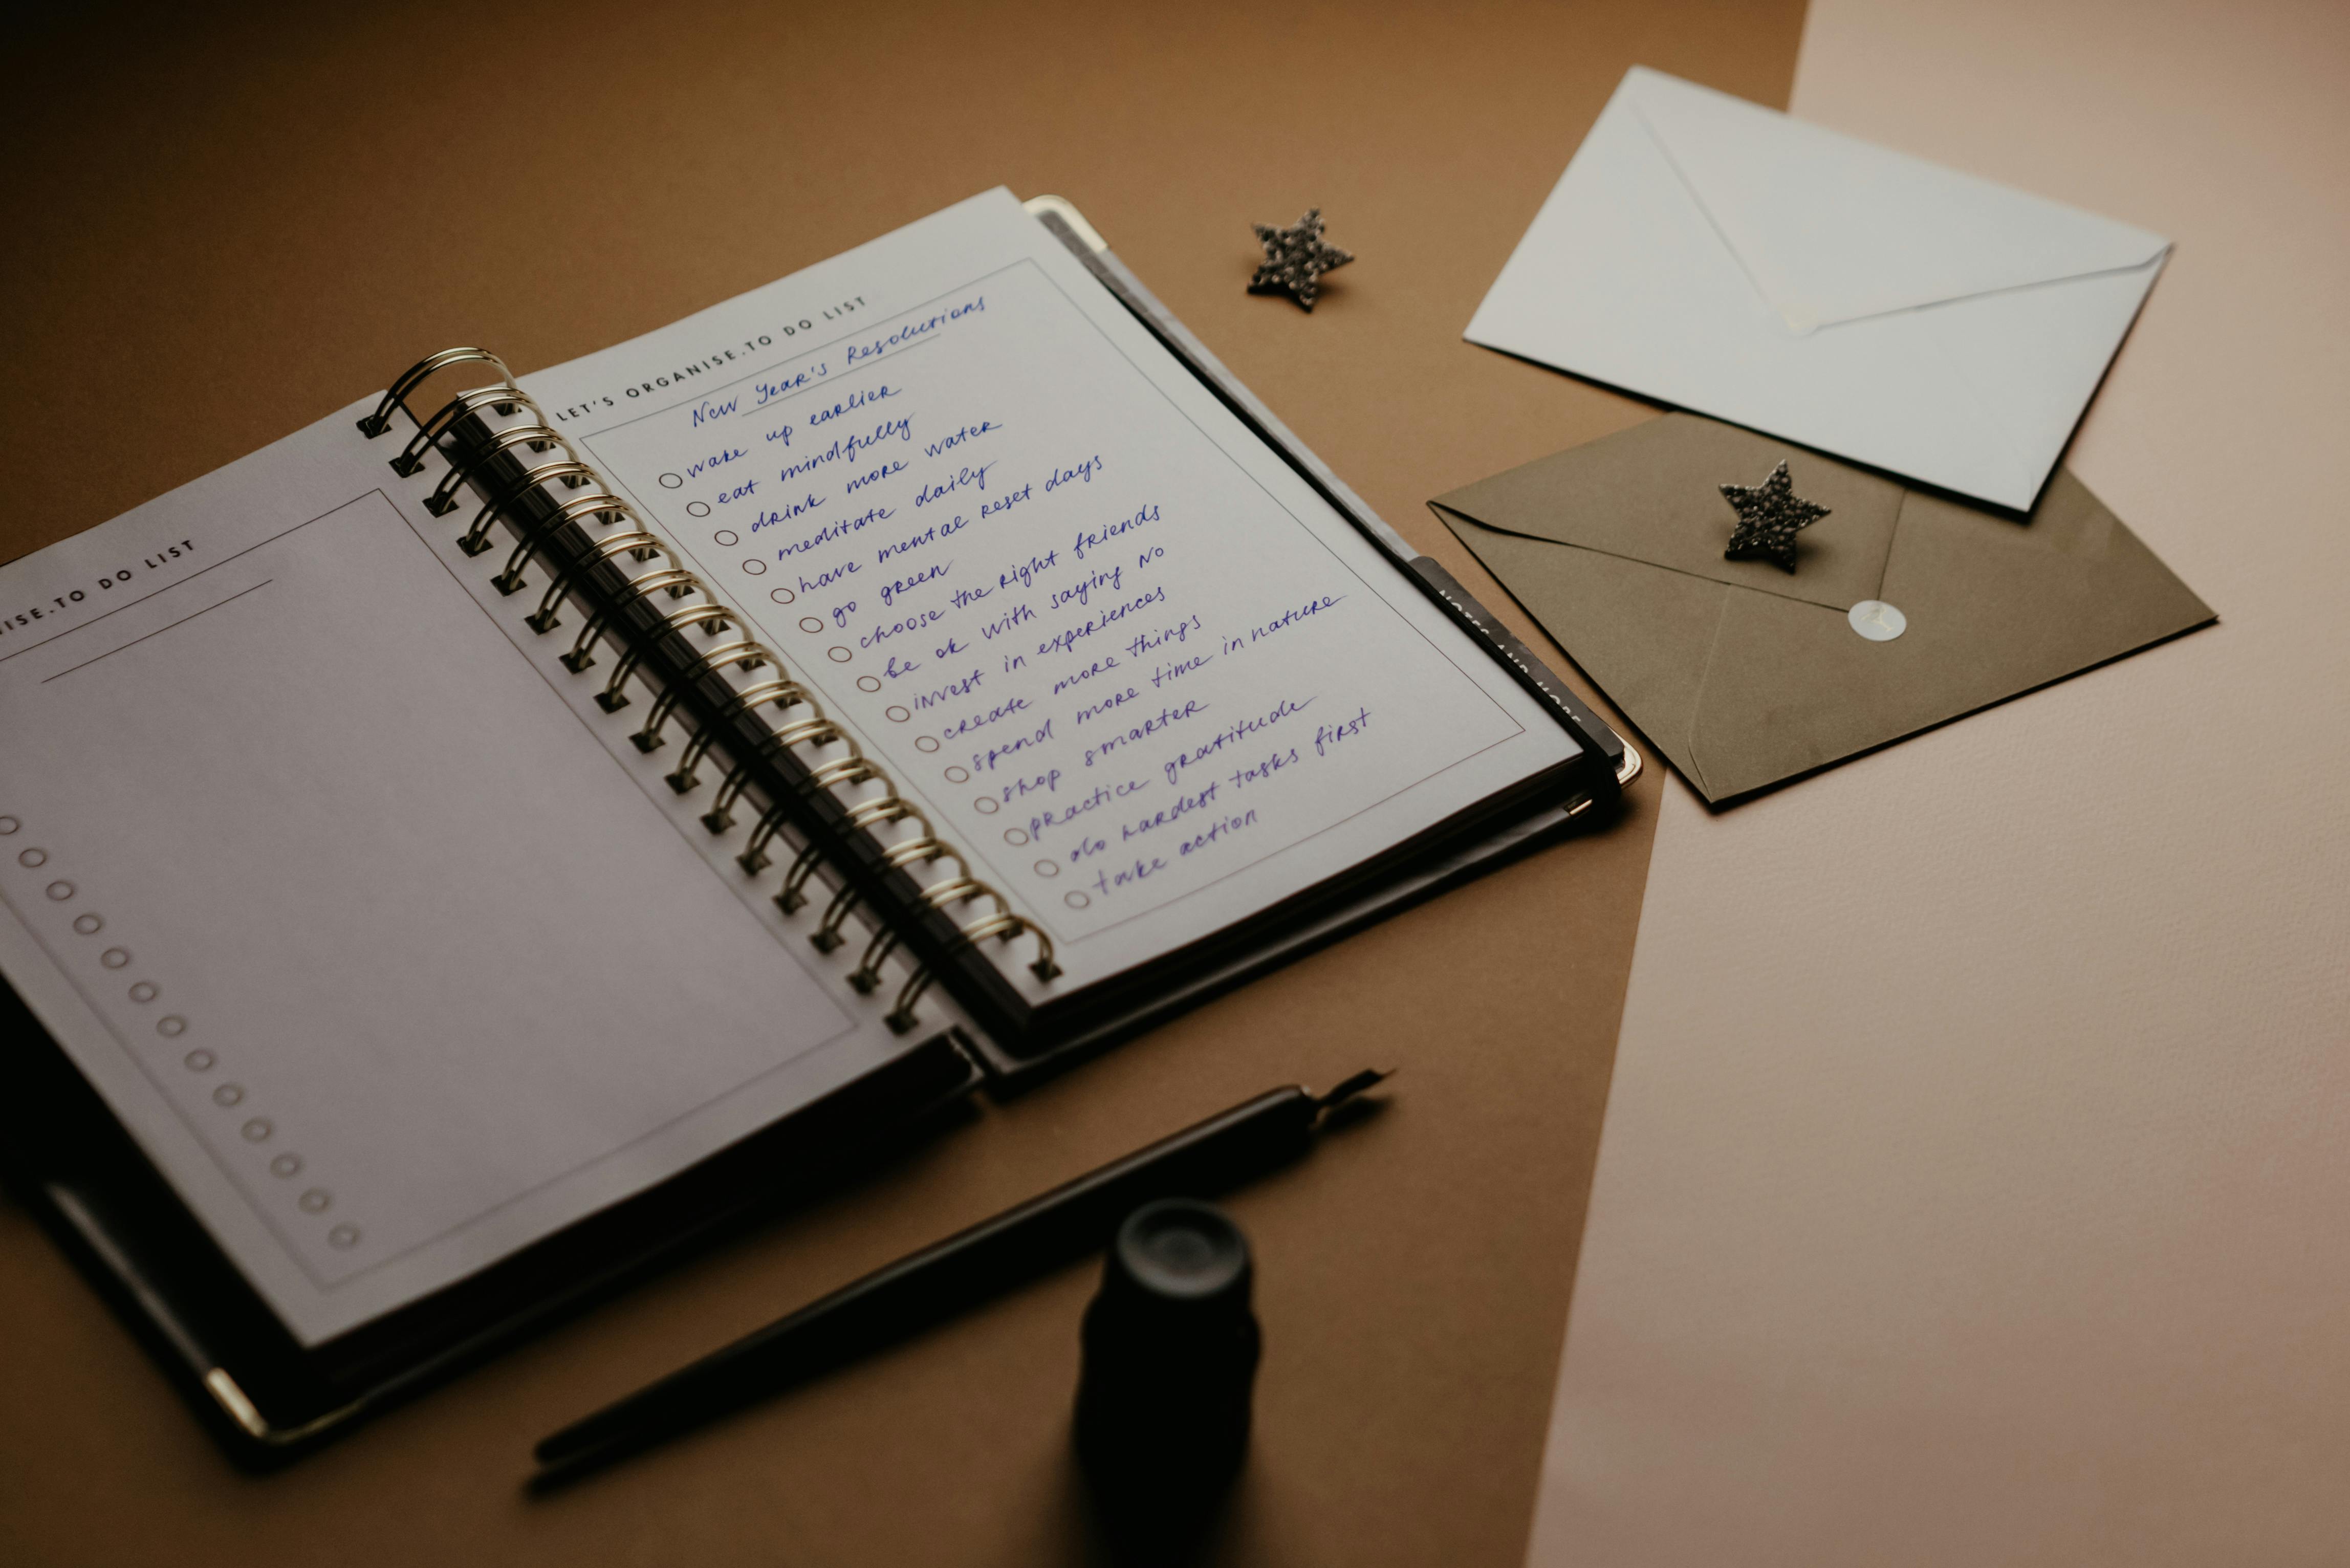 NISE.TO DO LIST
LET'S ORGANISE.TO DO LIST
New Year's Resolutions
wake up earlier
eat mindfully
drink more water
meditate daily
have mental reset days
go green
choose the right friends
be ok with saying NO
invest in experiences
create more things
spend more time in nature
shop smarter
practice gratitude
do hardest tasks first
take action
NOTES AND MORE